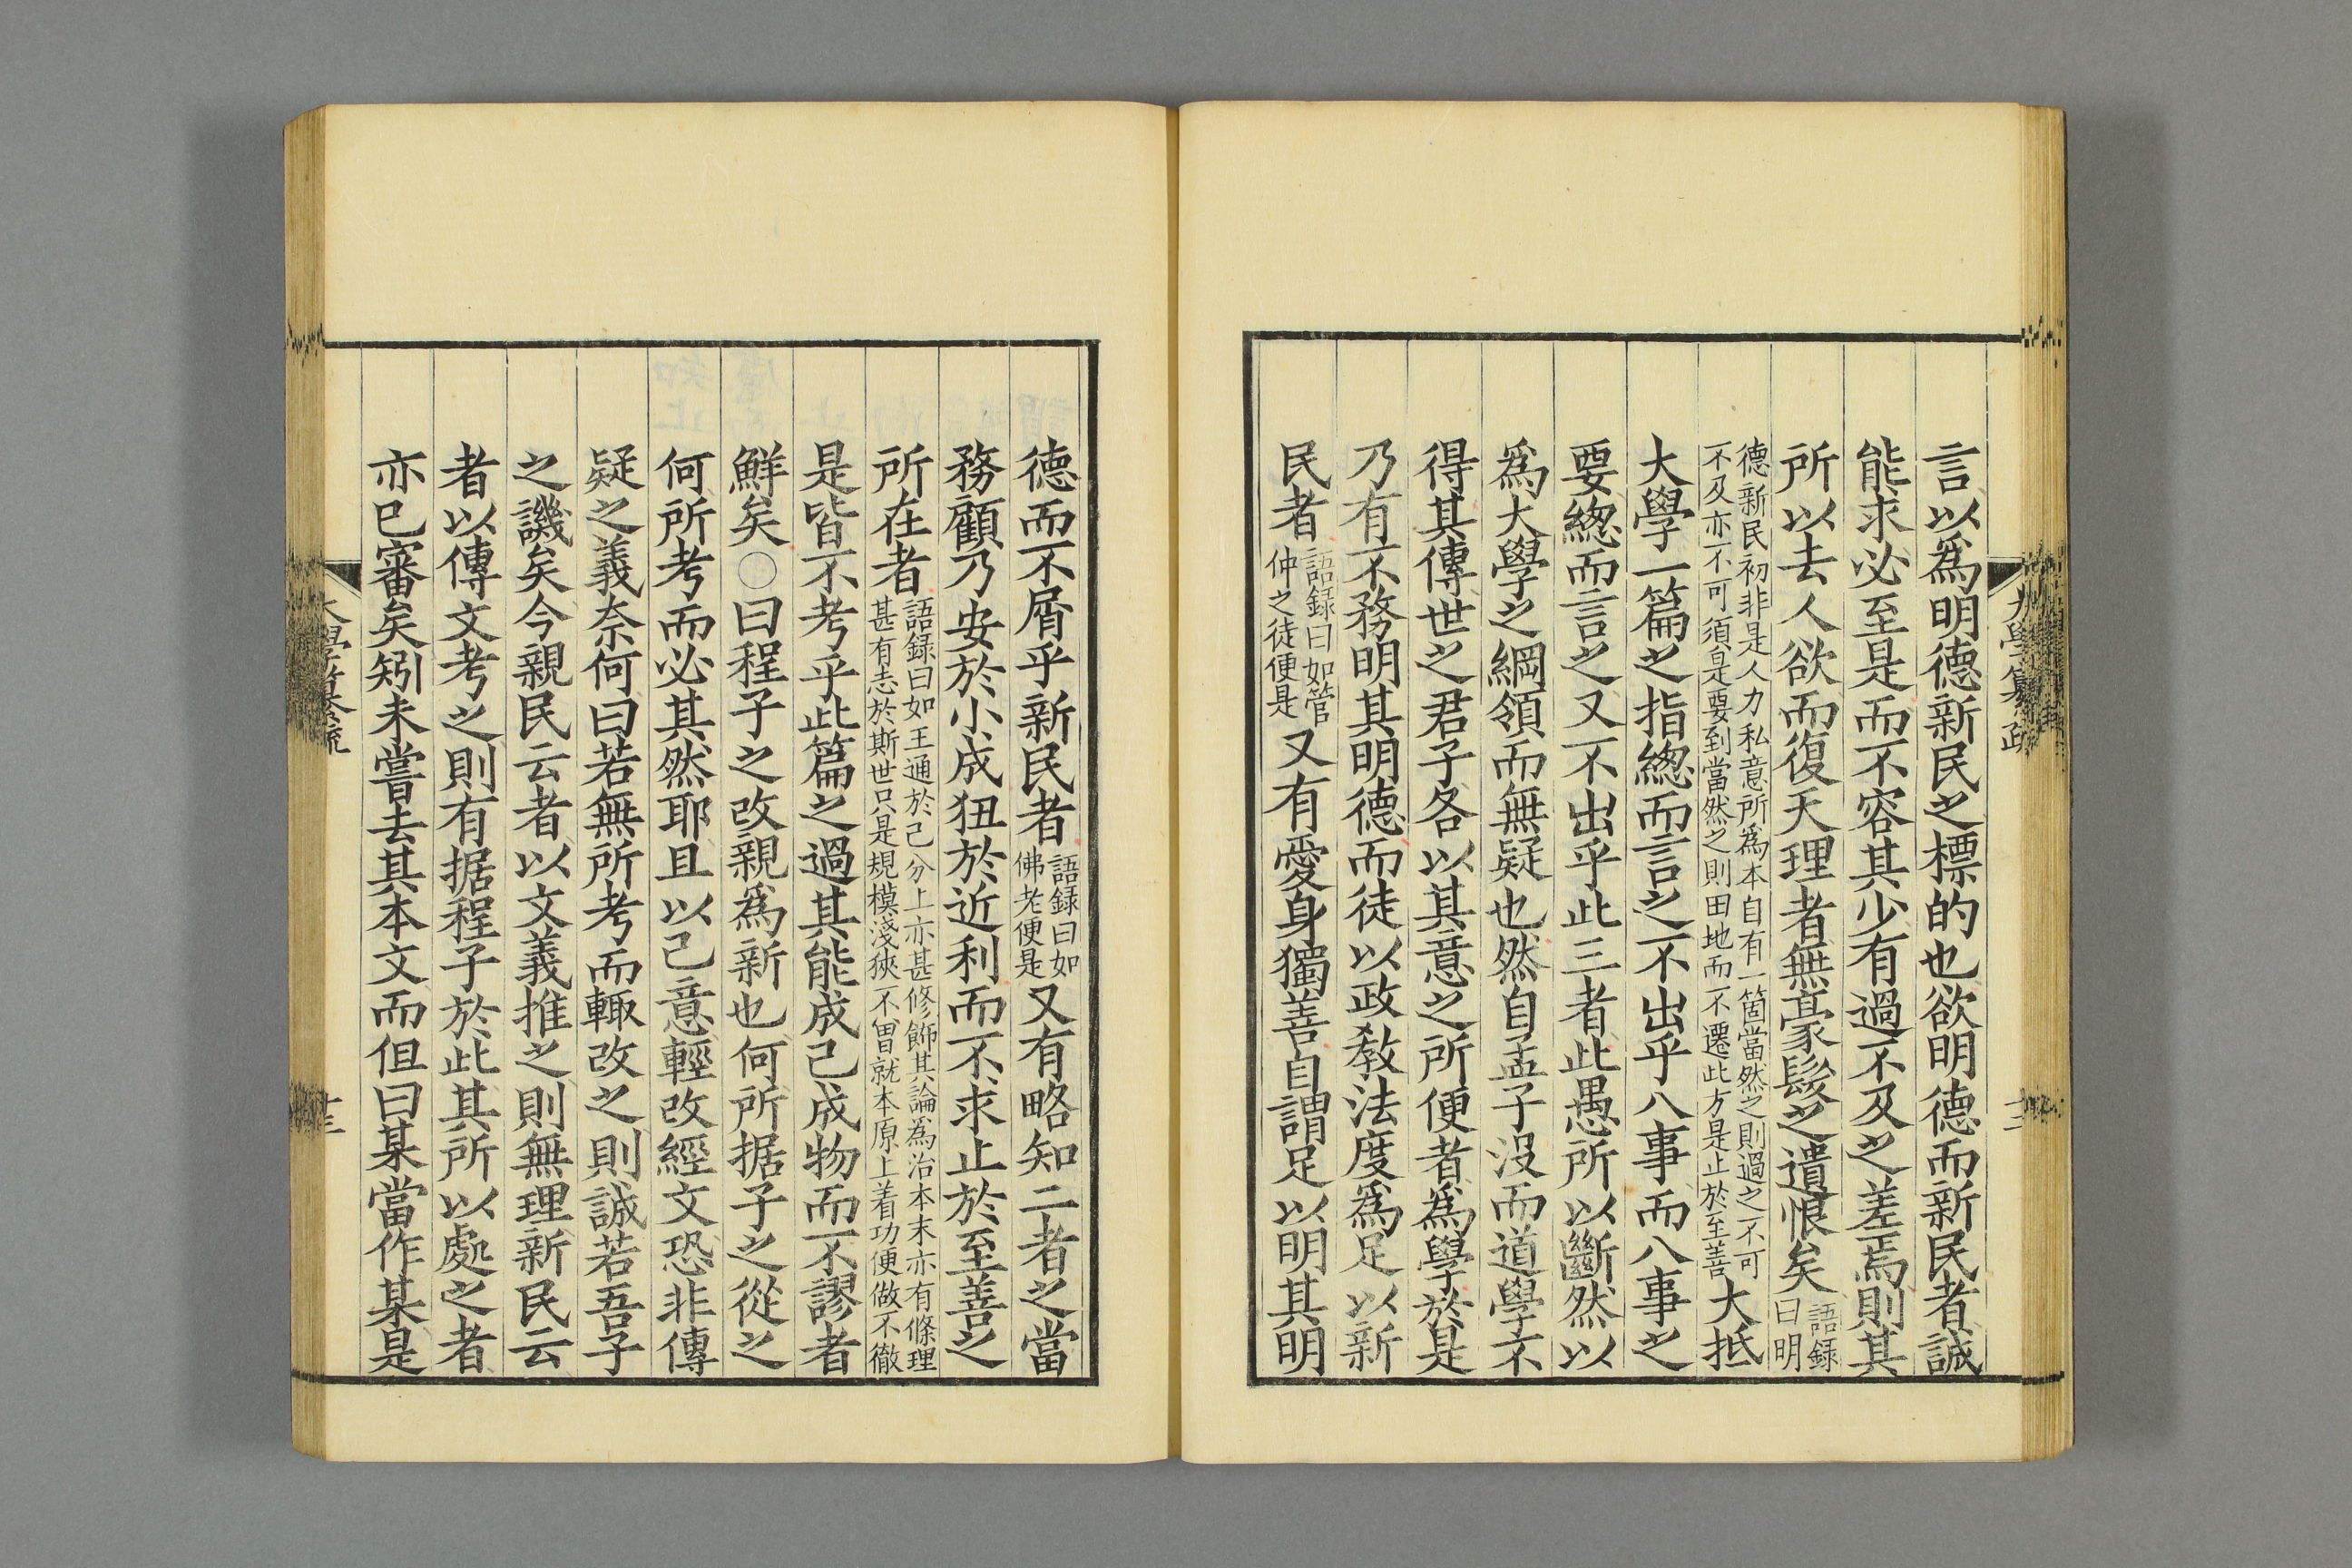 言以爲明德新民之標的也欲明德而新民者誠
能求必至是而不容其少有過不及之差焉則其
所以去人欲而復天理者無毫髮之遺恨矣語録曰明
德新民初非是人力私意所爲本自有一箇當然之則過之不可
不及亦不可須是要到當然之則田地而不遷此方是止於至善大抵
大學一篇之指緫而言之不出乎八事而八事之
要緫而言之又不出乎此三者此愚所以斷然以
爲大學之綱領而無疑也然自孟子没而道學不
得其傳世之君子各以其意之所便者爲學於是
乃有不務明其明德而徒以政敎法度爲足以新
民者語録曰如管仲之徒便是又有愛身獨善自謂足以明其明
大學纂疏
十二
德而不屑乎新民者語録曰如佛老便是又有略知二者之當
務顧乃安於小成狃於近利而不求止於至善之
所在者語録曰如王通於己分上亦甚修飾其論爲治本末亦有條理
甚有志於斯世只是規模淺狹不曾就本原上着功便做不徹
是皆不考乎此篇之過其能成己成物而不謬者
鮮矣○曰程子之改親爲新也何所据子之從之
何所考而必其然耶且以己意輕改經文恐非傳
疑之義奈何曰若無所考而輙改之則誠若吾子
之譏矣今親民云者以文義推之則無理新民云
者以傳文考之則有据程子於此其所以處之者
亦已審矣矧未嘗去其本文而但曰某當作某是
大學纂疏
十三